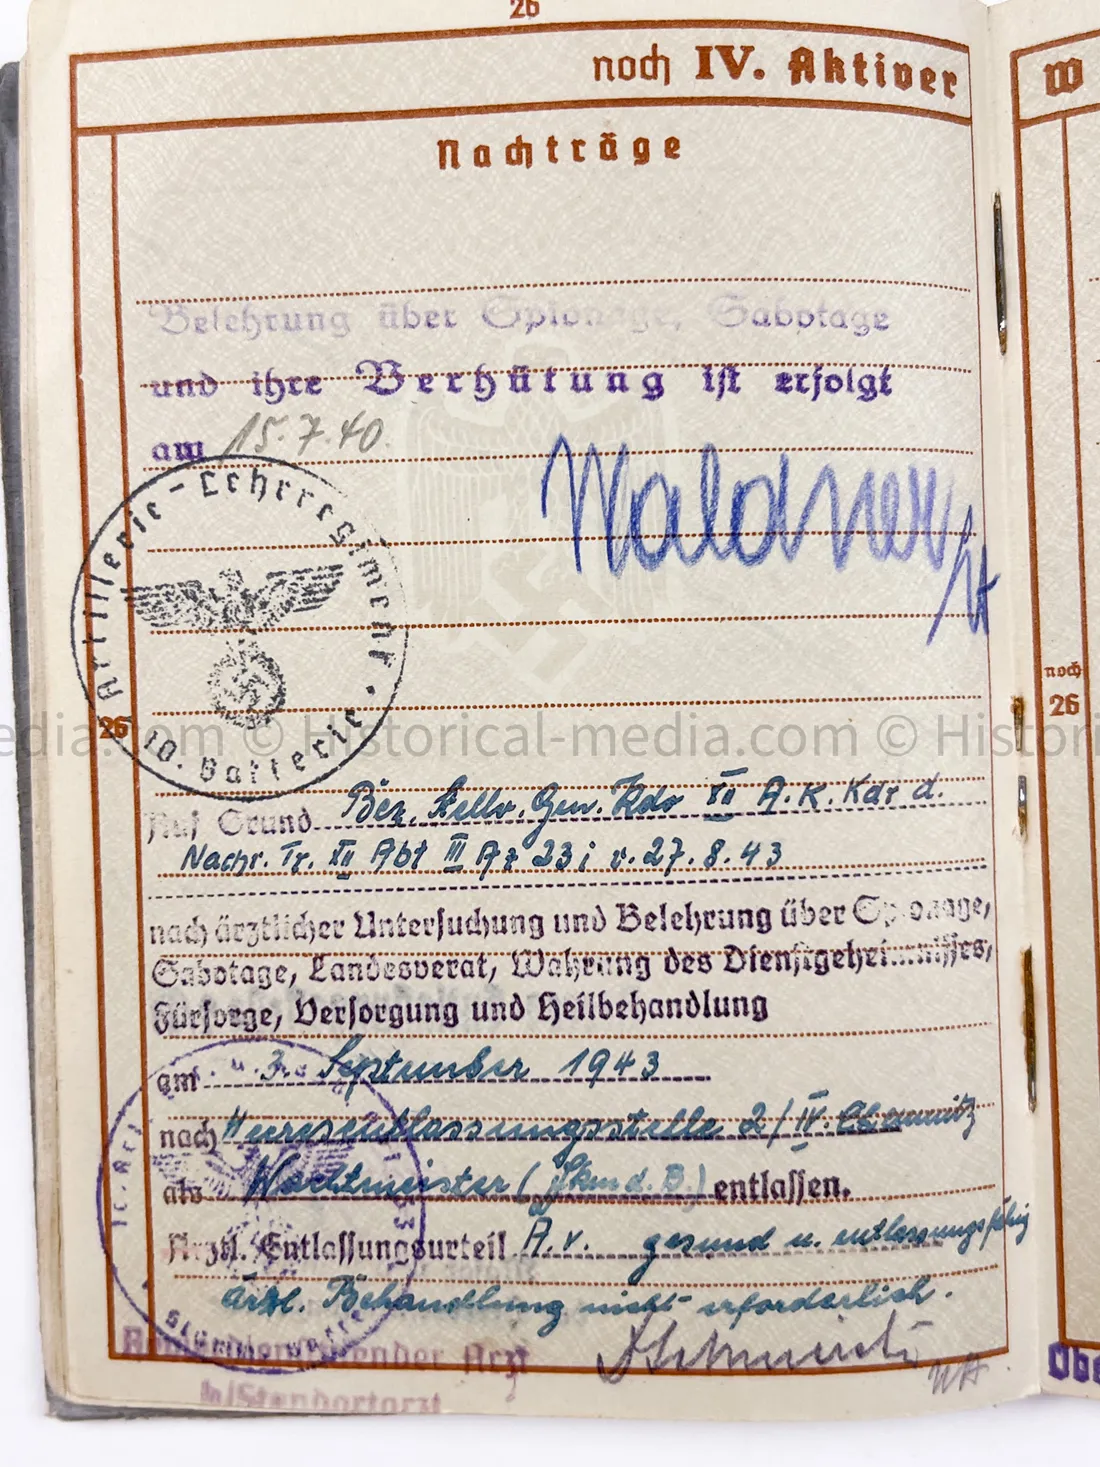 26
noch IV. Aktiver
W
Nachträge
Belehrung über Spionage, Sabotage
und ihre Verhütung ist erfolgt
am 15.7.40.
Waldner
Artillerie-Lehrregiment
10. Batterie
26
noch
26
edia.com © Historical-media.com © Histor
Auf Grund Bez. stellv. Gen. Kdo XII A.K. Kdr d.
Nachr. Tr. XII Abt III Az 23 i v. 27.8.43
nach ärztlicher Untersuchung und Belehrung über Spionage,
Sabotage, Landesverat, Wahrung des Dienstgeheimnisses,
Fürsorge, Versorgung und Heilbehandlung
am 3. September 1943
nach Heeresentlassungsstelle 2/IV Chemnitz
als Wachtmeister ( d. B.) entlassen.
Arztl. Entlassungsurteil A.v. gesund u. entlassungsfähig
ärztl. Behandlung nicht erforderlich.
Arzt
Standortarzt
Obe